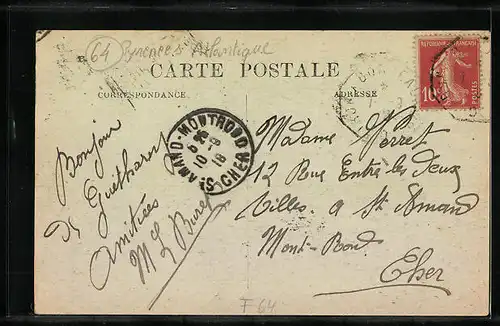 64 Pyrenees Atlantique
CARTE POSTALE
CORRESPONDANCE
ADRESSE
REPUBLIQUE FRANÇAISE
10
ST AMAND-MONTROND
10-8
18
CHER
Bonjour
de Guéthary
Amitiées
M L Buret
Madame Verret
12 Rue Entre les Deux
Villes a St Amand
Mont-Rond
Cher
F 64